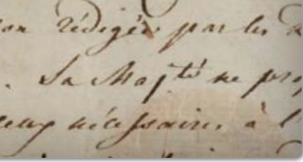 on rédigée par les
. Sa Majté ne pr
nécessaires à l